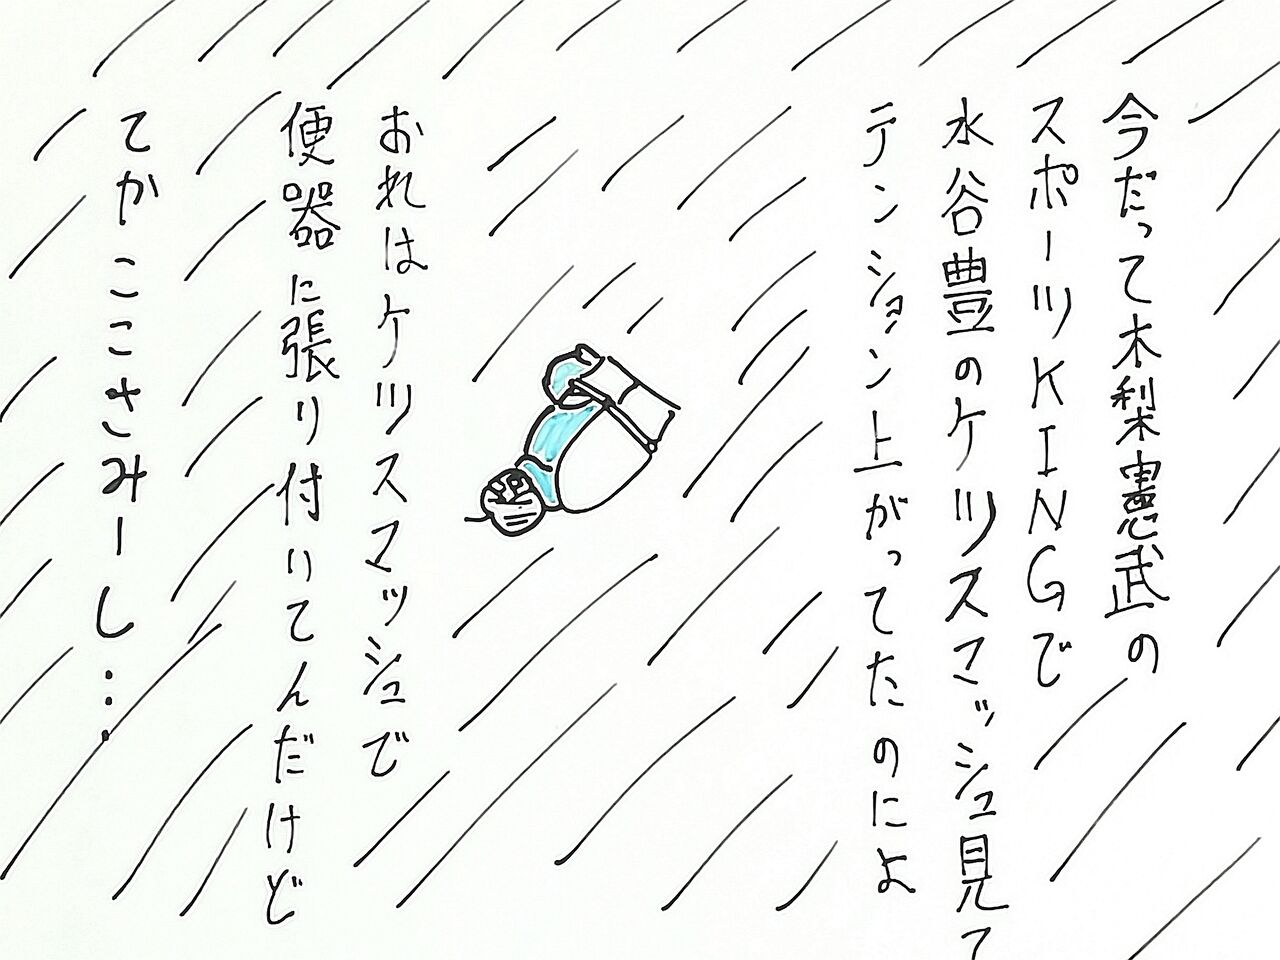 今だって木梨憲武の
スポーツKINGで
水谷豊のケツスマッシュ見て
テンション上がってたのによ
おれはケツスマッシュで
便器に張り付いてんだけど
てかここさみーし…